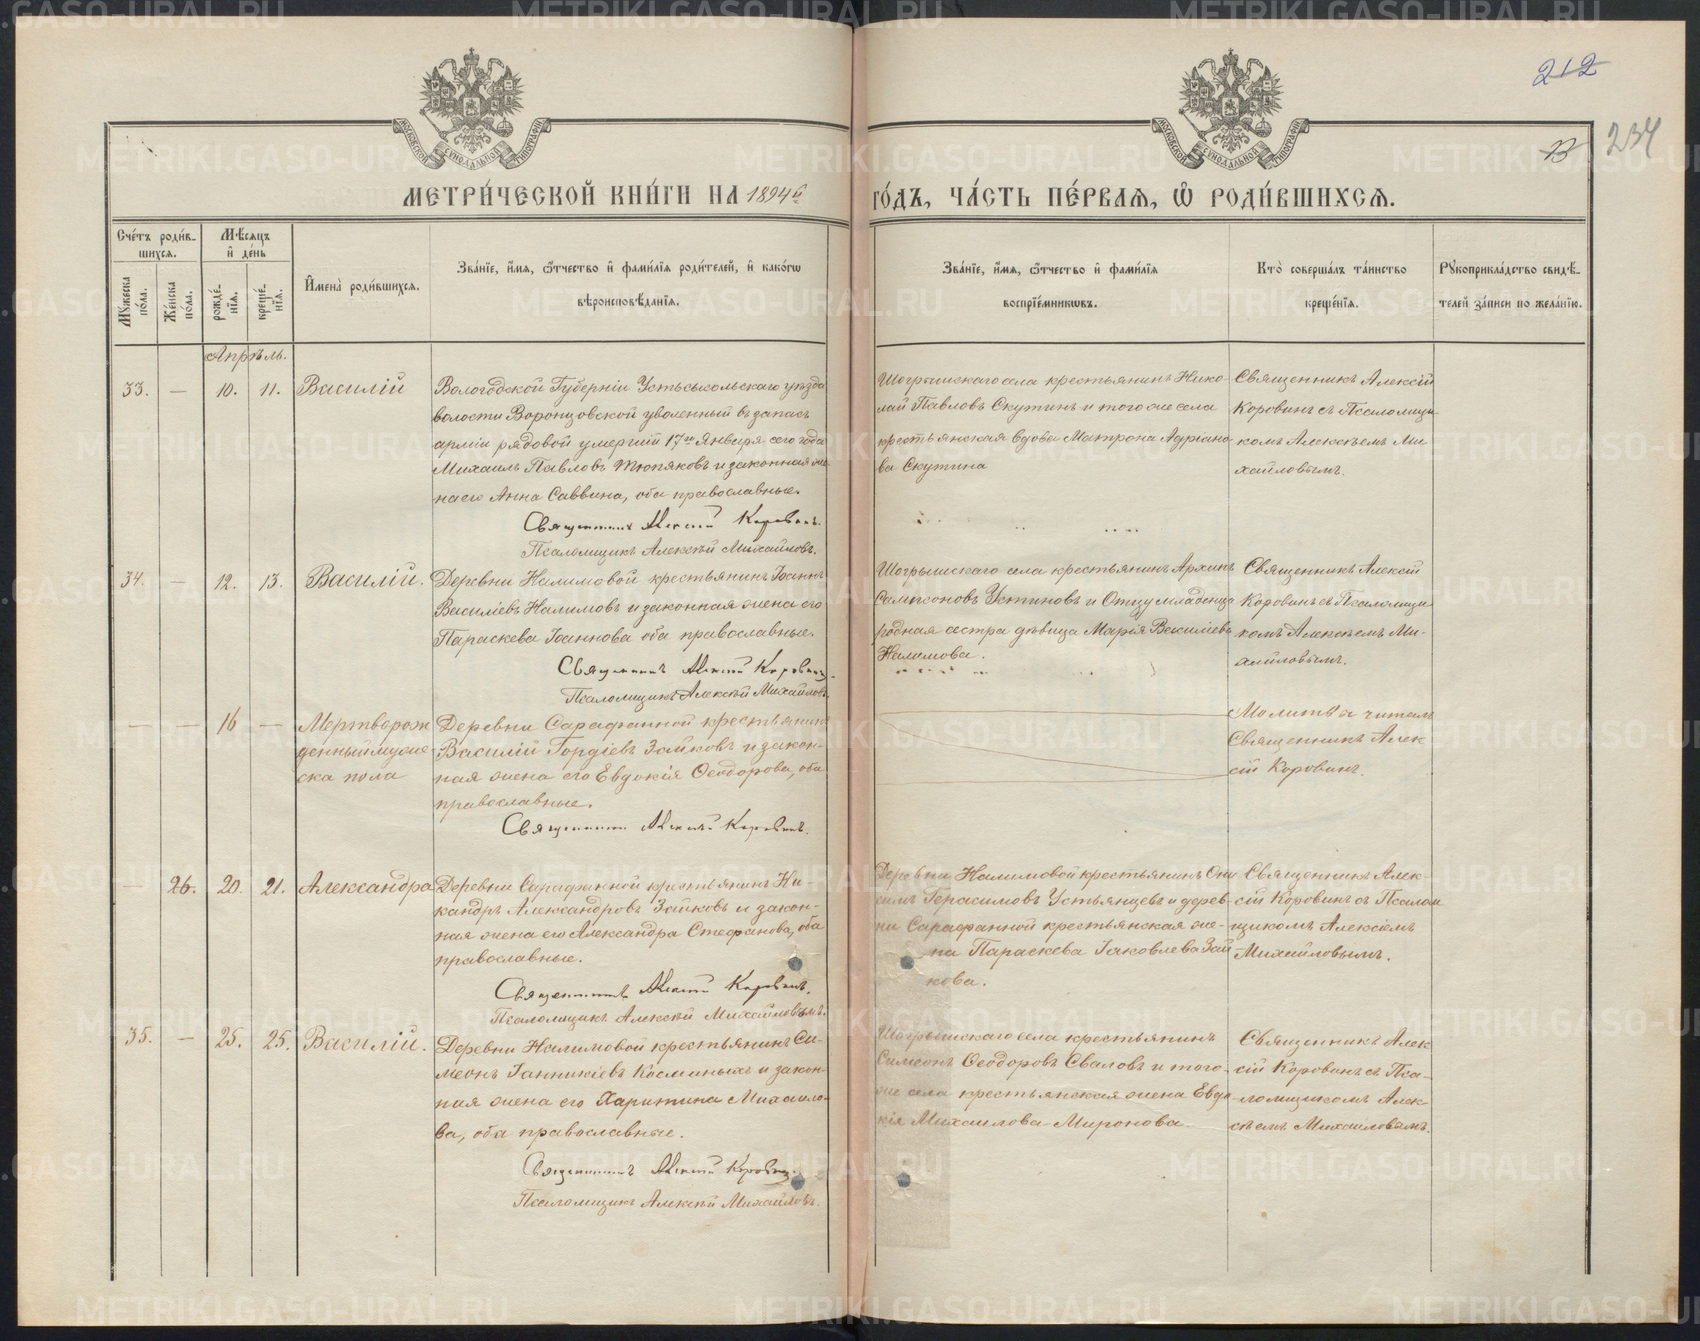 212
234
13
МОСКОВСКОЙ СѴНОДАЛЬНОЙ ТИПОГРАФІИ
МОСКОВСКОЙ СѴНОДАЛЬНОЙ ТИПОГРАФІИ
МЕТРИ́ЧЕСКОЙ КНИ́ГИ НА 1894й ГО́ДЪ, ЧА́СТЬ ПЕ́РВАѦ, Ѡ҆ РОДИ́ВШИХСѦ.
Сче́тъ роди́в-
шихсѧ.
Мꙋжеска по́ла.
Же́нска по́ла.
Мѣ́сѧцъ
и҆ де́нь
рожде́-
нїѧ.
креще́-
нїѧ.
И҆мена̀ роди́вшихсѧ.
Зва́нїе, и҆́мѧ, ѻ҆́тчество и҆ фами́лїѧ роди́телей, и҆ како́гѡ
вѣроисповѣ́данїѧ.
Зва́нїе, и҆́мѧ, ѻ҆́тчество и҆ фами́лїѧ
воспрїе́мникѡвъ.
Кто̀ соверша́лъ та́инство
креще́нїѧ.
Рꙋкоприкла́дство свидѣ́-
телей за́писи по жела́нїю.
Апрѣль.
33. — 10. 11. Василій
Вологодской Губерніи Устьсысольскаго уѣзда
волости Воронцовской уволенный въ запасъ
арміи рядовой умершій 17го Января сего года
Михаилъ Павловъ Тюпяковъ и законная же-
на его Анна Саввина, оба православные.
Священникъ Алексій Коровинъ.
Псаломщикъ Алексѣй Михайловъ.
Шогрышскаго села крестьянинъ Нико-
лай Павловъ Скутинъ и того же села
крестьянская вдова Матрона Адріано-
ва Скутина
Священникъ Алексій
Коровинъ съ Псаломщи
комъ Алексѣемъ Ми
хайловымъ.
34. — 12. 13. Василій.
Деревни Налимовой крестьянинъ Іоаннъ
Василіевъ Налимовъ и законная жена его
Параскева Іоаннова оба православные.
Священникъ Алексій Коровинъ.
Псаломщикъ Алексѣй Михайловъ.
Шогрышскаго села крестьянинъ Архипъ
Сампсоновъ Устиновъ и Отцу младенца
родная сестра дѣвица Марія Василіева
Налимова.
Священникъ Алексій
Коровинъ съ Псаломщи
комъ Алексѣемъ Ми-
хайловымъ.
— — 16 — Мертворож
денный муже
ска пола
Деревни Сарафанной крестьянинъ
Василій Гордіевъ Зайковъ и закон-
ная жена его Евдокія Ѳеодорова, оба
православные.
Священникъ Алексій Коровинъ.
Молитву читалъ
Священникъ Алек
сій Коровинъ.
— 26. 20. 21. Александра
Деревни Сарафанной крестьянинъ Ни-
кандръ Александровъ Зайковъ и закон-
ная жена его Александра Стефанова, оба
православные.
Священникъ Алексій Коровинъ.
Псаломщикъ Алексѣй Михайловымъ.
Деревни Налимовой крестьянинъ Они
симъ Герасимовъ Устьянцевъ и дерев-
ни Сарафанной крестьянская же-
на Параскева Іаковлева Зай
кова.
Священникъ Алек-
сій Коровинъ съ Псалом
щикомъ Алексіемъ
Михайловымъ.
35. — 25. 25. Василій.
Деревни Налимовой крестьянинъ Си-
меонъ Іанникіевъ Косминыхъ и закон-
ная жена его Харитина Михаило-
ва, оба православные.
Священникъ Алексій Коровинъ.
Псаломщикъ Алексѣй Михайловъ.
Шогрышскаго села крестьянинъ
Симеонъ Ѳеодоровъ Сваловъ и того-
же села крестьянская жена Евдо
кія Михаилова Миронова.
Священникъ Алек
сій Коровинъ съ Пса-
ломщикомъ Алек
сѣемъ Михаиловымъ.
METRIKI.GASO-URAL.RU